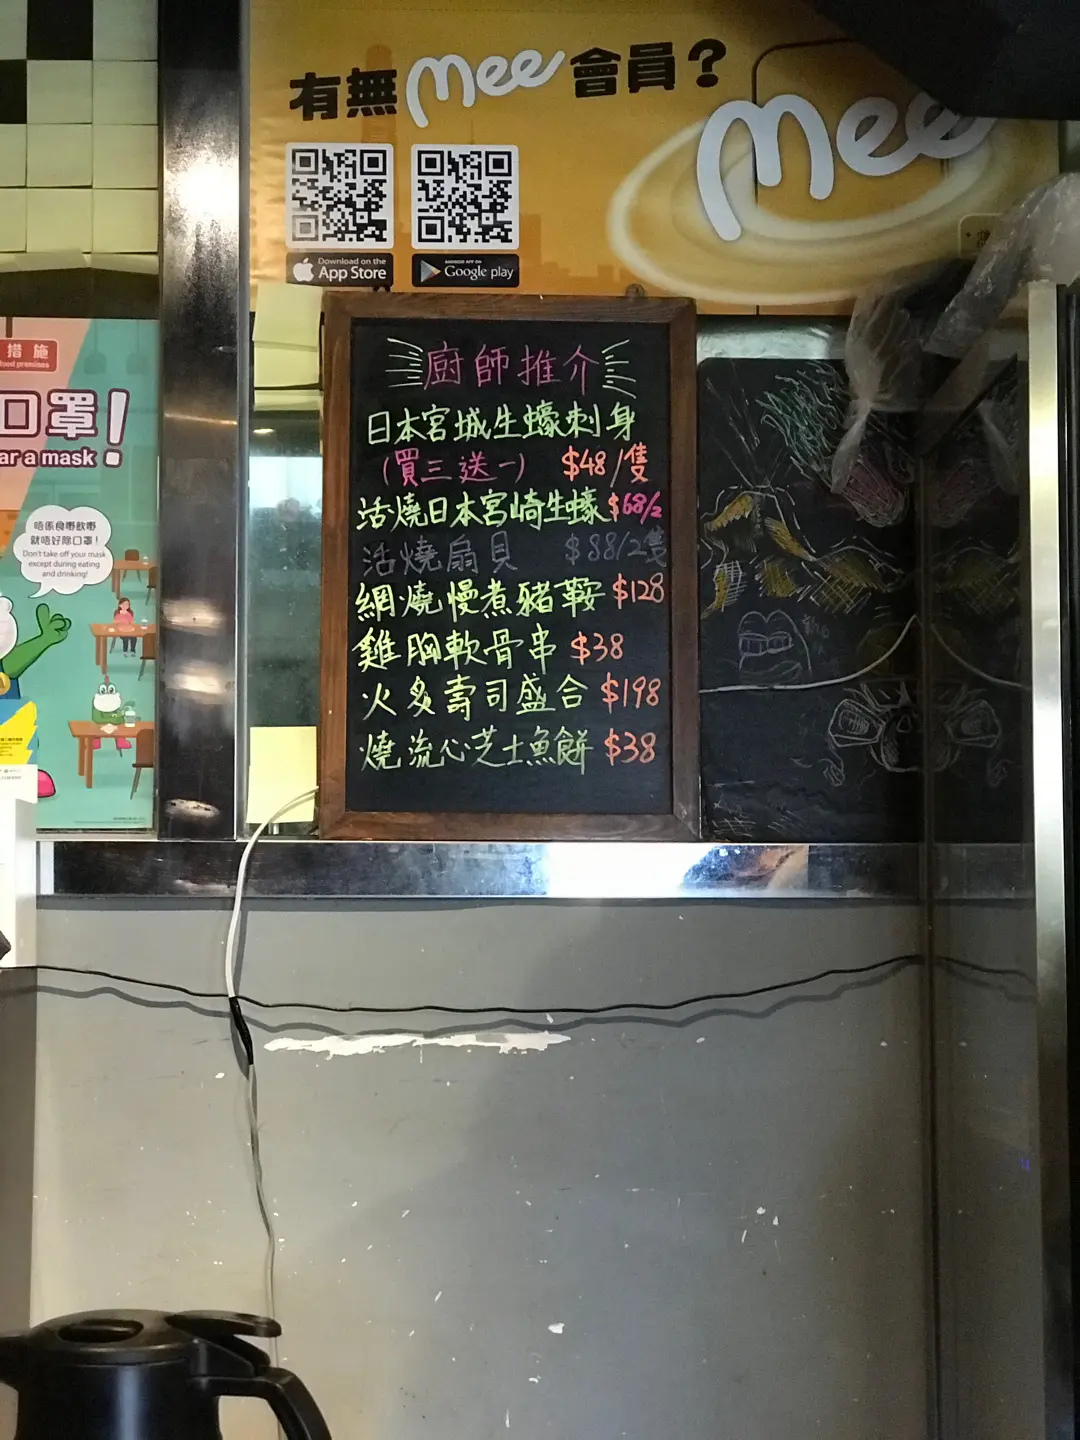 有無mee會員？
mee
Download on the
App Store
ANDROID APP ON
Google play
措施
food premises
口罩!
ar a mask !
唔係食嘢飲嘢
就唔好除口罩！
Don't take off your mask
except during eating
and drinking!
廚師推介
日本宮城生蠔刺身
(買三送一) $48/隻
活燒日本宮崎生蠔$68/2
活燒扇貝 $88/2隻
網燒慢煮豬鞍 $128
雞胸軟骨串 $38
火炙壽司盛合 $198
燒流心芝士魚餅 $38